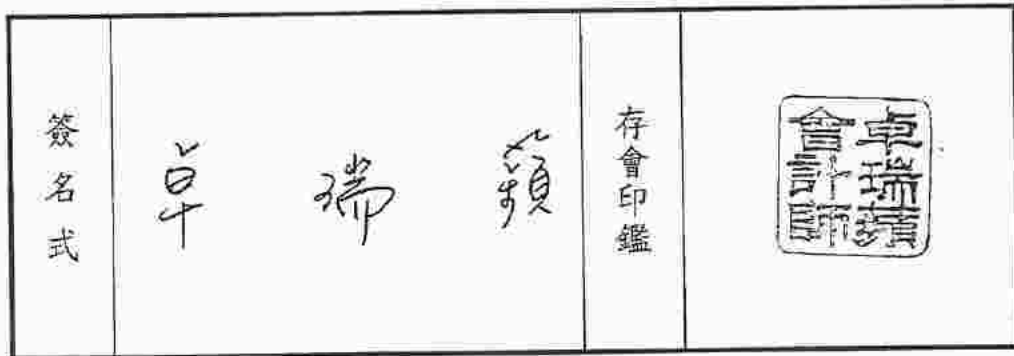 簽名式
卓 瑞
存會印鑑
卓瑞
會計師